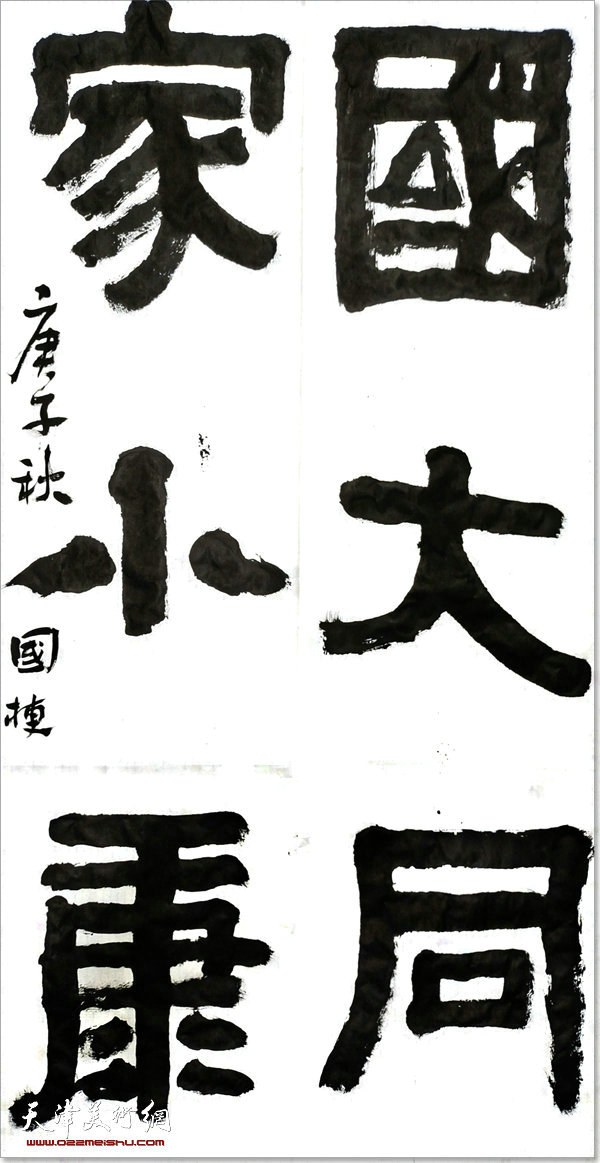 國大同
家小康
庚子秋 國梗
天津美術網
www.022meishu.com